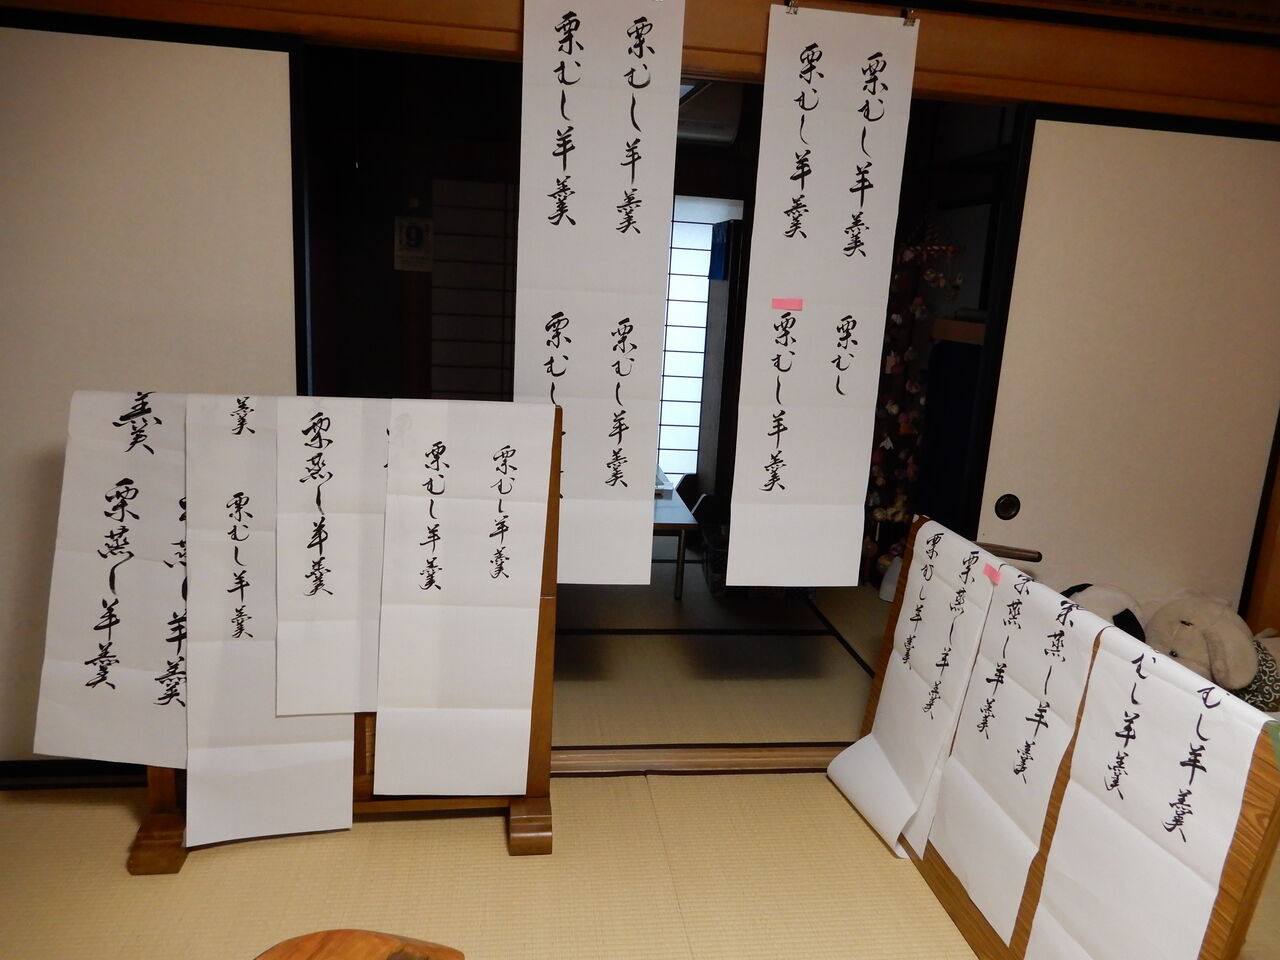 栗むし羊羹
栗むし羊羹
栗むし羊羹
栗むし
栗むし羊羹
栗むし羊羹
栗むし
栗むし羊羹
9
栗むし羊羹
栗むし羊羹
栗蒸し羊羹
羹
栗むし羊羹
蒸し羊羹
羹
栗蒸し羊羹
むし羊羹
むし羊羹
蒸し羊羹
蒸し羊羹
栗蒸し羊羹
栗むし羊羹